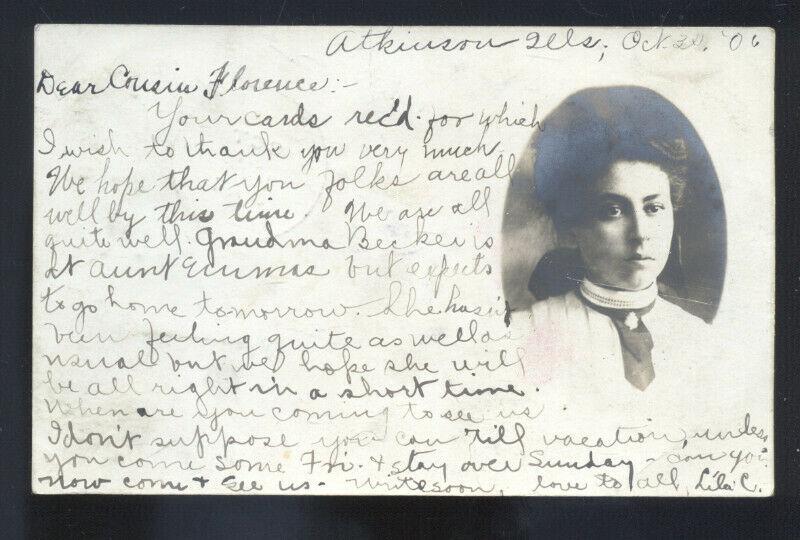 Atkinson Ills; Oct. 30, '06
Dear Cousin Florence:-
Your cards rec'd. for which
I wish to thank you very much.
We hope that you folks are all
well by this time. We are all
quite well. Grandma Becker is
at aunt Emmas but expects
to go home tomorrow. She hasn't
been feeling quite as well as
usual but we hope she will
be all right in a short time.
When are you coming to see us
I don't suppose you can 'till vacation, unless
you come some Fri. + stay over Sunday - can you
now come + see us - Write soon, love to all, Lila C.